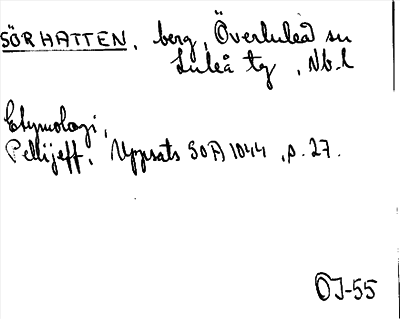 SÖRHATTEN, berg, Överluleå sn
Luleå tg, Nb.l
Etymologi,
Pellijeff, Uppsats SOA 1044, p. 27.
OJ-55